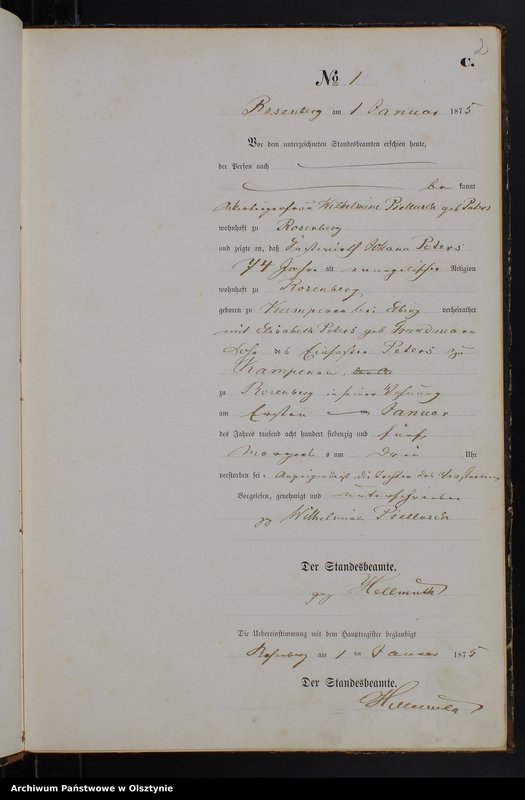 2
C.
No 1
Rosenberg am 1 Januar 1875
Vor dem unterzeichneten Standesbeamten erschien heute,
der Person nach
bekannt
Wilhelmine geb Peters
wohnhaft zu Rosenberg
und zeigte an, daß Gastwirth Johann Peters
74 Jahre alt evangelischer Religion
wohnhaft zu Rosenberg
geboren zu Kampenau bei Elbing verheirathet
mit Elisabeth Peters geb
Sohn des Einsassen Peters zu
Kampenau
zu Rosenberg in seiner Wohnung
am Ersten Januar
des Jahres tausend acht hundert siebenzig und fünf
Morgens um drei Uhr
verstorben sei. die Tochter des Verstorbenen
Vorgelesen, genehmigt und unterschrieben
gz Wilhelmine
Der Standesbeamte.
gez Hellmuth
Die Uebereinstimmung mit dem Hauptregister beglaubigt
Rosenberg am 1 ten Januar 1875
Der Standesbeamte.
Hellmuth
Archiwum Państwowe w Olsztynie